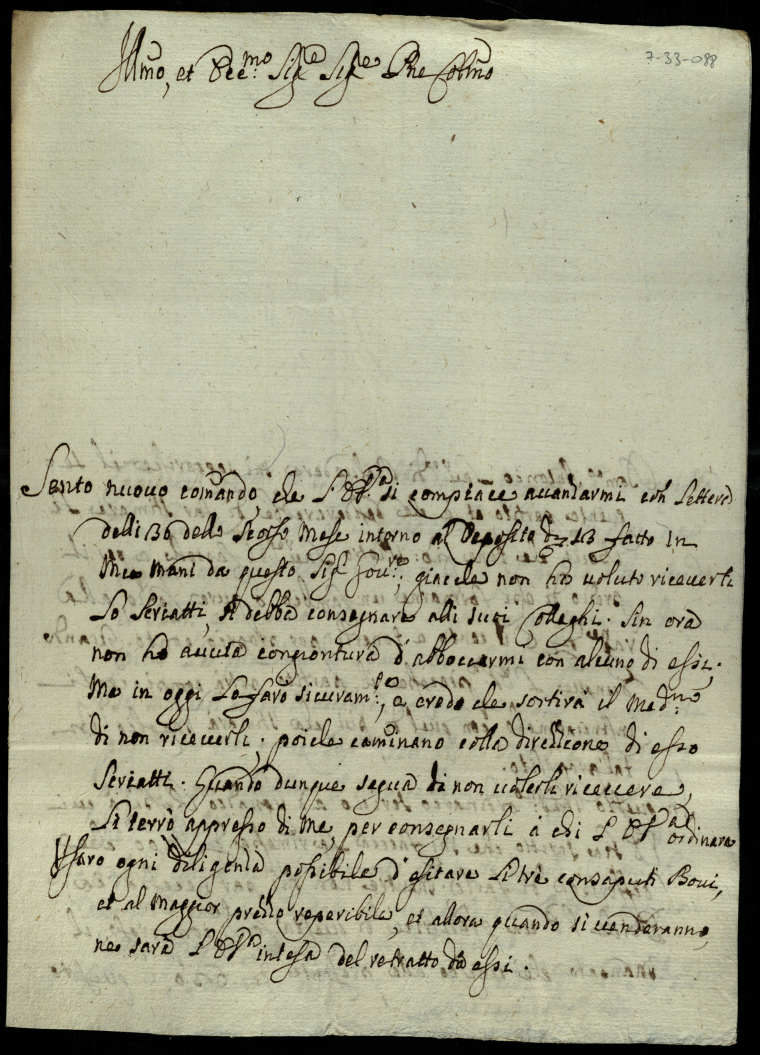 7-33-088
Illmo, et Ecc.mo Sig.e Sig.e Pne Colmo
Sento nuovo comando, che V. E. si compiace avanzarmi con lettera
delli 30 dello scorso Mese intorno al Deposito di 13 fatto in
Mie Mani da questo Sig.r Gov.re, giache non hà voluto riceverli
Lo Seriatti, si debba consegnare alli suoi Colleghi. Sin ora
non hò avuta congiontura d'abboccarmi con alcuno di essi,
Ma in oggi lo farò sicuram.te, e credo che sortirà il Med.mo
di non riceverli, poiche caminano colla direzione di esso
Seriatti. Quando dunque segua di non volerli ricevere,
Li terrò appresso di Me, per consegnarli à chi V. E. ordinara
Usarò ogni diligenza possibile d'esitare Li trè consaputi Bovi,
et al Maggior prezzo reperibile, et allora quando si venderanno,
ne sarà V. E. intesa del retratto di essi.